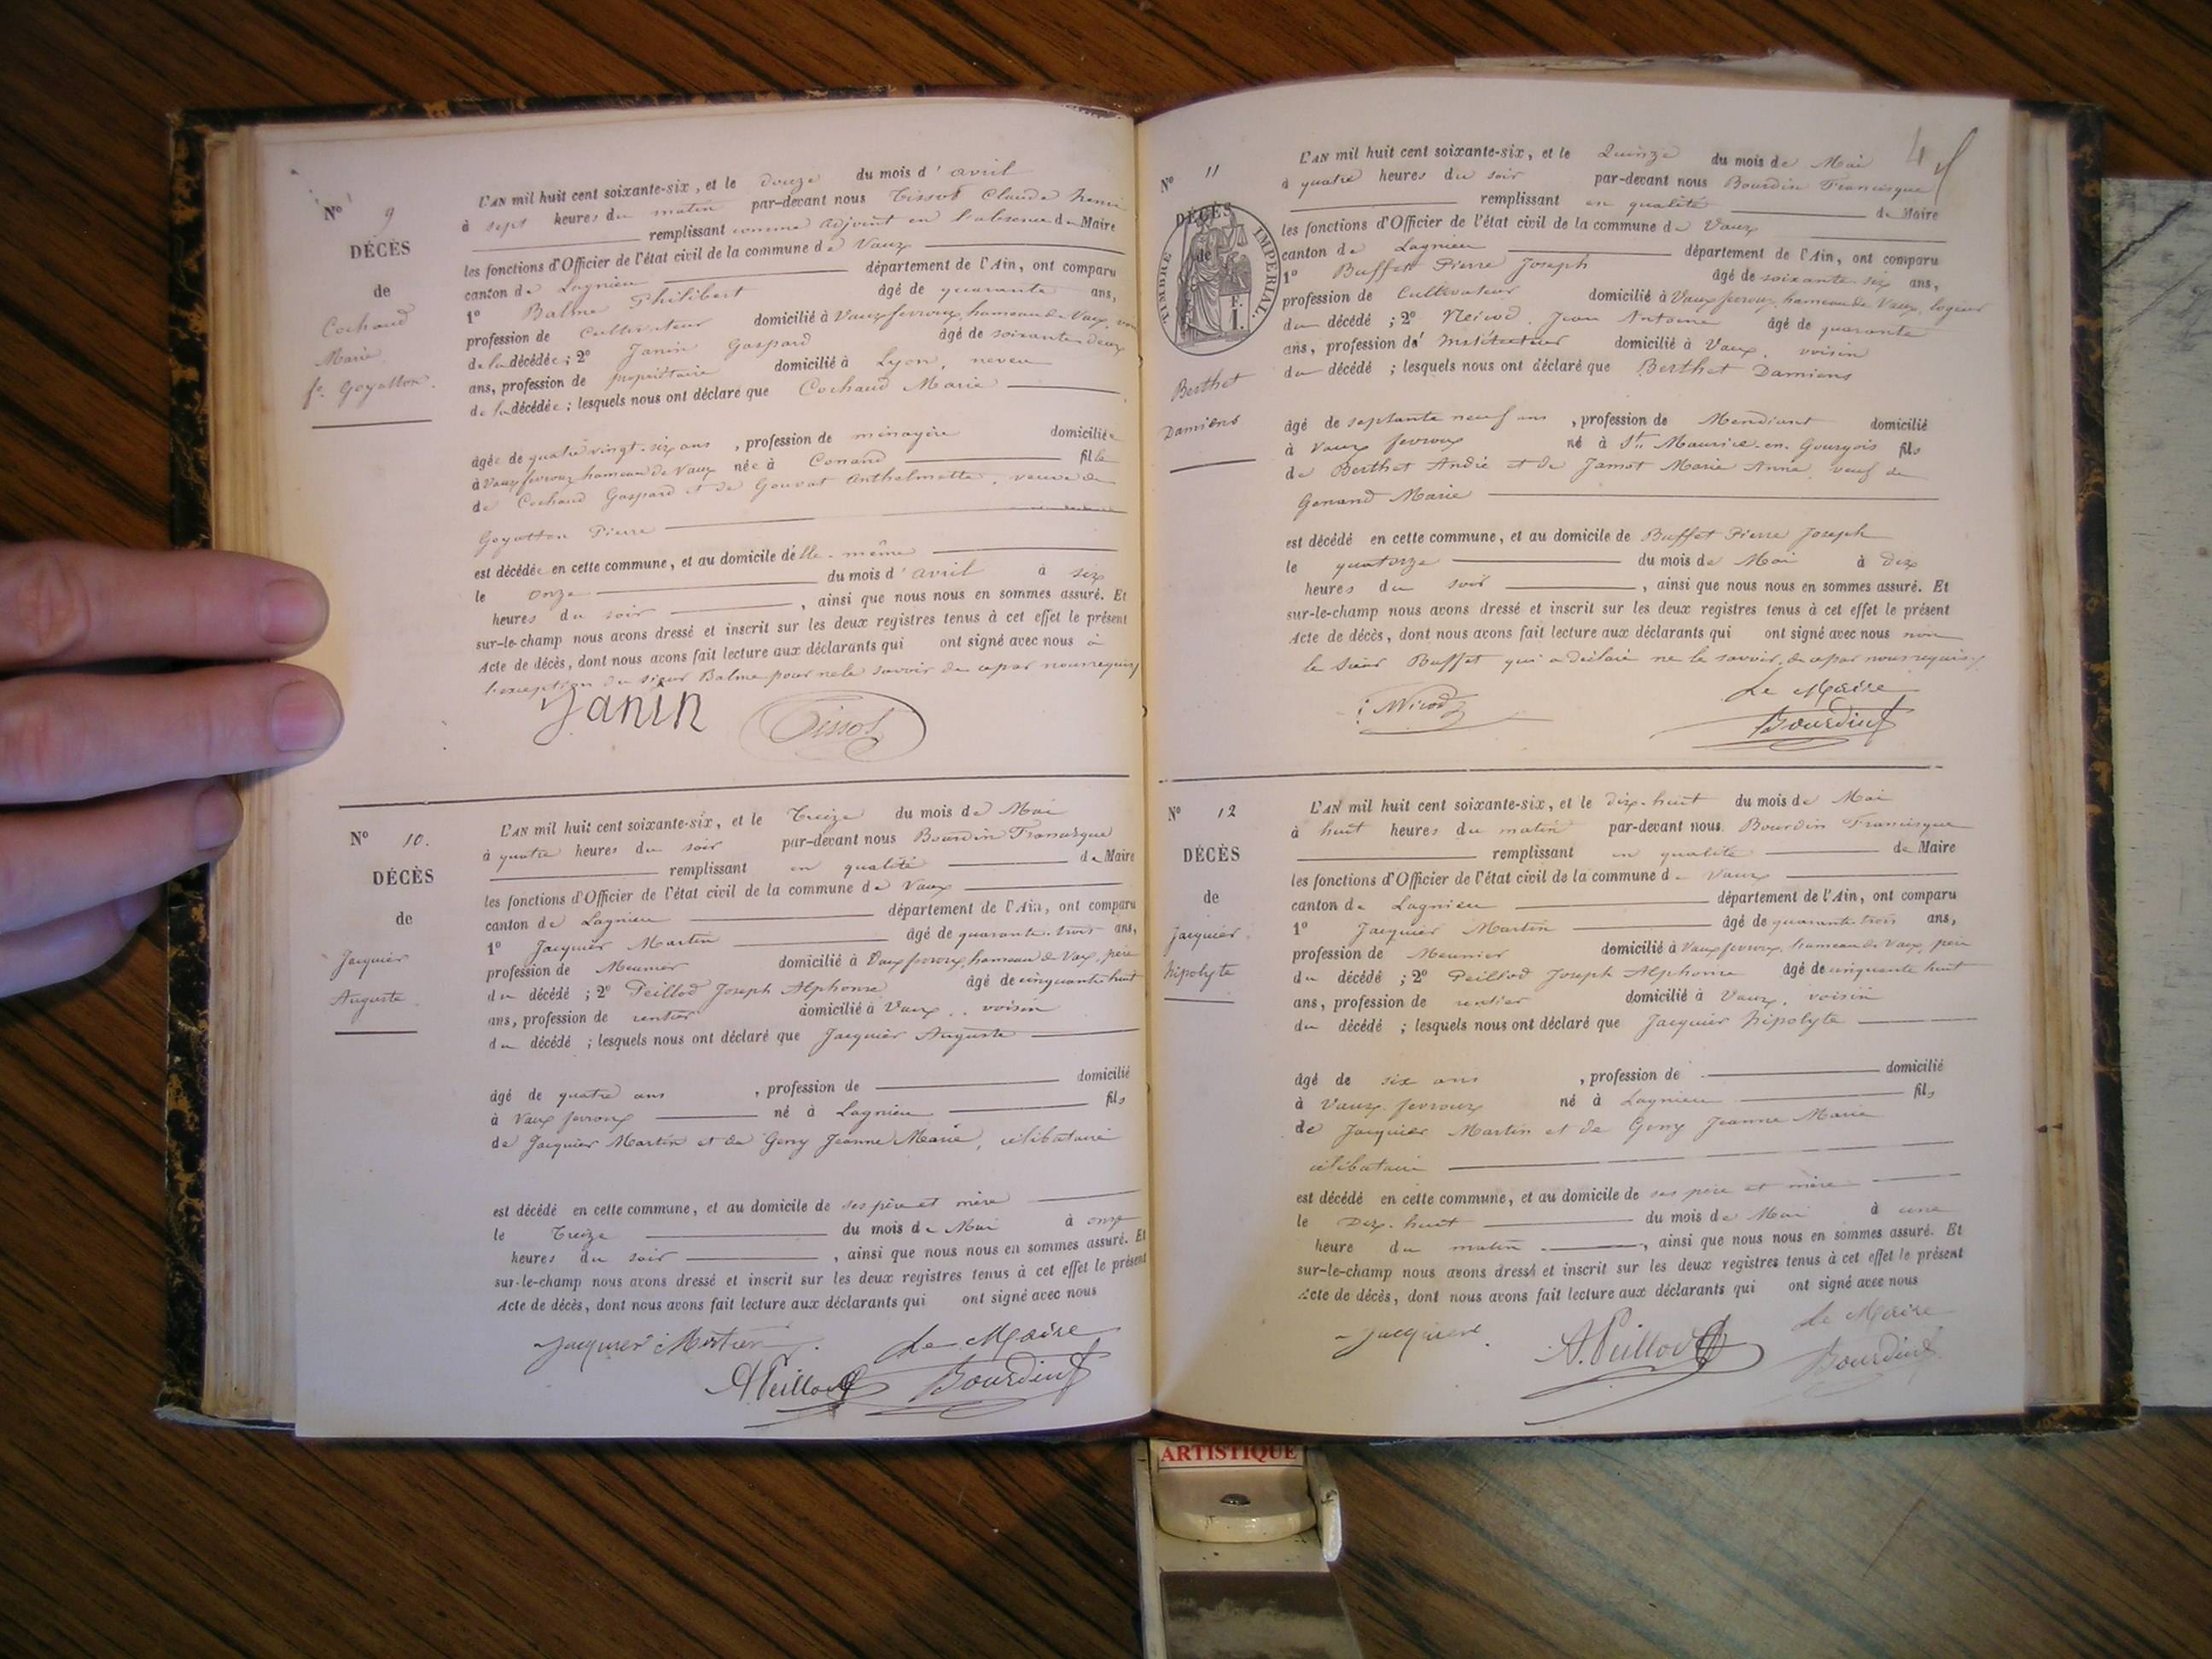 N° 9
DÉCÈS
de
Cochaud
Marie
fe. Goyatton.
L'AN mil huit cent soixante-six, et le douze du mois d'avril
à sept heures du matin par-devant nous Tissot Claude henri
remplissant comme adjoint en l'absence du Maire
les fonctions d'Officier de l'état civil de la commune de Vaux
canton de Lagnieu département de l'Ain, ont comparu
1° Balme Philibert âgé de quarante ans,
profession de Cultivateur domicilié à Vaux fevroux, hameau de Vaux,
de la décédée; 2° Janin Gaspard âgé de soixante deux
ans, profession de propriétaire domicilié à Lyon, neveu
de la décédée; lesquels nous ont déclaré que Cochaud Marie
âgée de quatre vingt-six ans, profession de ménagère domiciliée
à Vaux fevroux hameau de Vaux née à Conand fille
de Cochaud Gaspard et de Gouvat Anthelmette, veuve de
Goyatton Pierre
est décédée en cette commune, et au domicile d'elle-même
le onze du mois d'avril à six
heures du soir, ainsi que nous nous en sommes assuré. Et
sur-le-champ nous avons dressé et inscrit sur les deux registres tenus à cet effet le présent
Acte de décès, dont nous avons fait lecture aux déclarants qui ont signé avec nous à
l'exception du sieur Balme pour ne le savoir de ce par nous requis
Janin Tissot
N° 10.
DÉCÈS
de
Jacquier
Auguste
L'AN mil huit cent soixante-six, et le Treize du mois de Mai
à quatre heures du soir par-devant nous Bourdin Francisque
remplissant en qualité de Maire
les fonctions d'Officier de l'état civil de la commune de Vaux
canton de Lagnieu département de l'Ain, ont comparu
1° Jacquier Martin âgé de quarante-trois ans,
profession de Meunier domicilié à Vaux fevroux, hameau de Vaux, père
du décédé; 2° Peillod Joseph Alphonse âgé de cinquante huit
ans, profession de rentier domicilié à Vaux, voisin
du décédé; lesquels nous ont déclaré que Jacquier Auguste
âgé de quatre ans, profession de domicilié
à Vaux fevroux né à Lagnieu fils
de Jacquier Martin et de Geny Jeanne Marie, célibataire
est décédé en cette commune, et au domicile de ses père et mère
le Treize du mois de Mai à onze
heures du soir, ainsi que nous nous en sommes assuré. Et
sur-le-champ nous avons dressé et inscrit sur les deux registres tenus à cet effet le présent
Acte de décès, dont nous avons fait lecture aux déclarants qui ont signé avec nous
Jacquier Martin Le Maire
A Peillod Bourdin f
N° 11
DÉCÈS
de
TIMBRE IMPERIAL
Berthet
Damiens
L'AN mil huit cent soixante-six, et le Quinze du mois de Mai
à quatre heures du soir par-devant nous Bourdin Francisque
remplissant en qualité de Maire
les fonctions d'Officier de l'état civil de la commune de Vaux
canton de Lagnieu département de l'Ain, ont comparu
1° Buffet Pierre Joseph âgé de soixante six ans,
profession de Cultivateur domicilié à Vaux fevroux, hameau de Vaux, logeur
du décédé; 2° Nicod Jean Antoine âgé de quarante
ans, profession d'Instituteur domicilié à Vaux, voisin
du décédé; lesquels nous ont déclaré que Berthet Damiens
âgé de septante neuf ans, profession de Mendiant domicilié
à Vaux fevroux né à St. Maurice-en-Gourgois fils
de Berthet André et de Jamot Marie Anna, veuf de
Genand Marie
est décédé en cette commune, et au domicile de Buffet Pierre Joseph
le quatorze du mois de Mai à dix
heures du soir, ainsi que nous nous en sommes assuré. Et
sur-le-champ nous avons dressé et inscrit sur les deux registres tenus à cet effet le présent
Acte de décès, dont nous avons fait lecture aux déclarants qui ont signé avec nous non
le sieur Buffet qui a déclaré ne le savoir, de ce par nous requis
Nicod Le Maire
Bourdin f
N° 12
DÉCÈS
de
Jacquier
hipolyte
L'AN mil huit cent soixante-six, et le dix-huit du mois de Mai
à huit heures du matin par-devant nous Bourdin Francisque
remplissant en qualité de Maire
les fonctions d'Officier de l'état civil de la commune de Vaux
canton de Lagnieu département de l'Ain, ont comparu
1° Jacquier Martin âgé de quarante-trois ans,
profession de Meunier domicilié à Vaux fevroux, hameau de Vaux, père
du décédé; 2° Peillod Joseph Alphonse âgé de cinquante huit
ans, profession de rentier domicilié à Vaux, voisin
du décédé; lesquels nous ont déclaré que Jacquier hipolyte
âgé de six ans, profession de domicilié
à Vaux fevroux né à Lagnieu fils
de Jacquier Martin et de Geny Jeanne Marie
célibataire
est décédé en cette commune, et au domicile de ses père et mère
le Dix-huit du mois de Mai à une
heure du matin, ainsi que nous nous en sommes assuré. Et
sur-le-champ nous avons dressé et inscrit sur les deux registres tenus à cet effet le présent
Acte de décès, dont nous avons fait lecture aux déclarants qui ont signé avec nous
Jacquier A. Peillod Le Maire
Bourdin f
ARTISTIQUE